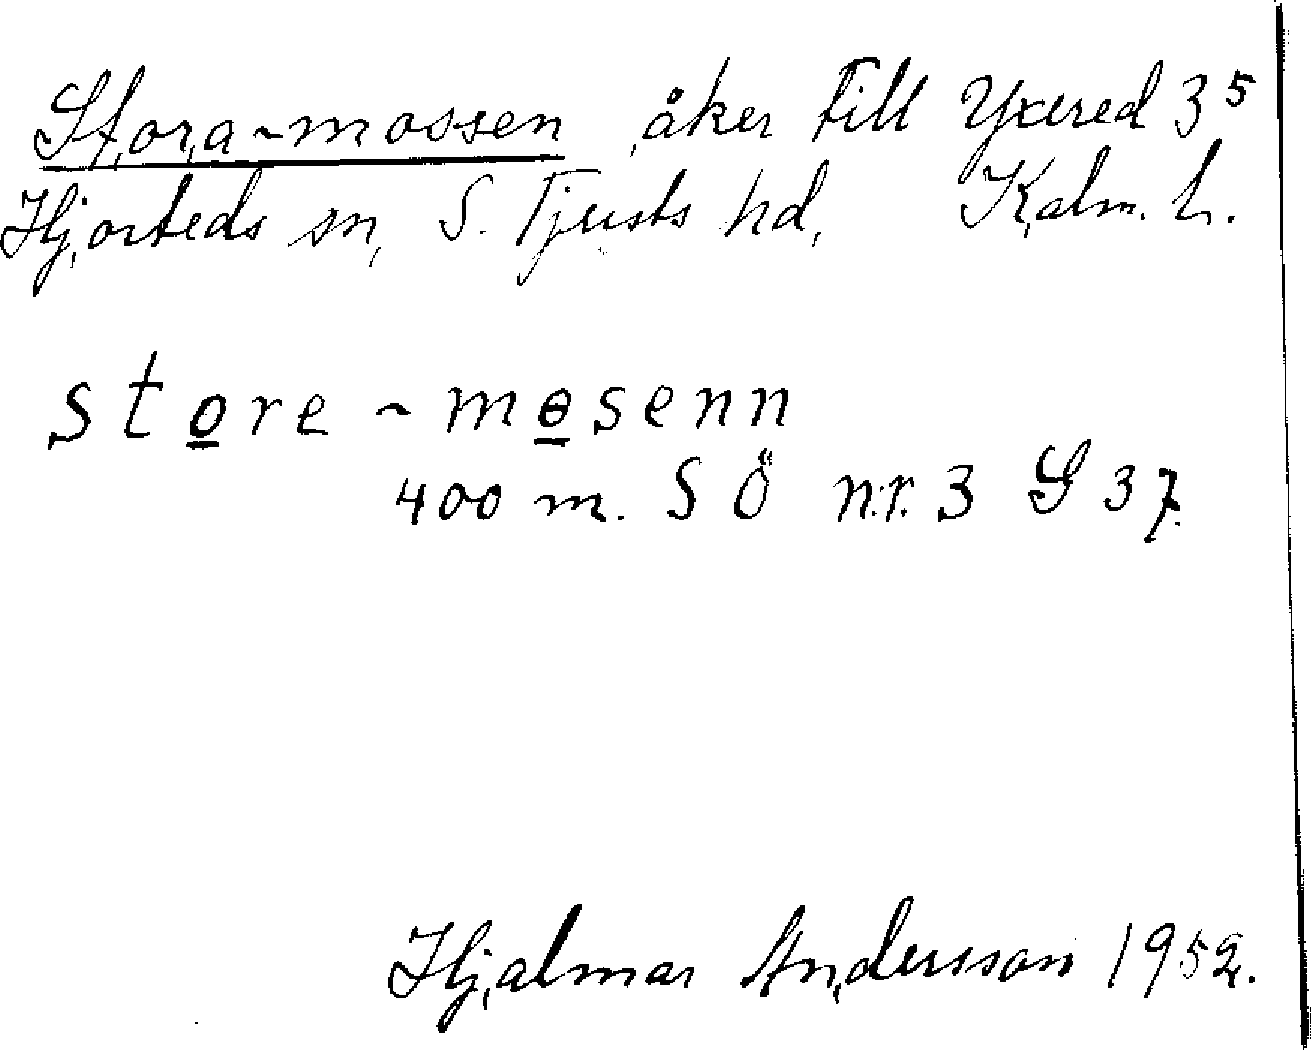 Stora-mossen åker till Yxered 3⁵
Hjorteds sn, S. Tjusts hd, Kalm. L.
store - mɵsenn
400 m. S Ö nr. 3 S 37.
Hjalmar Andersson 1952.